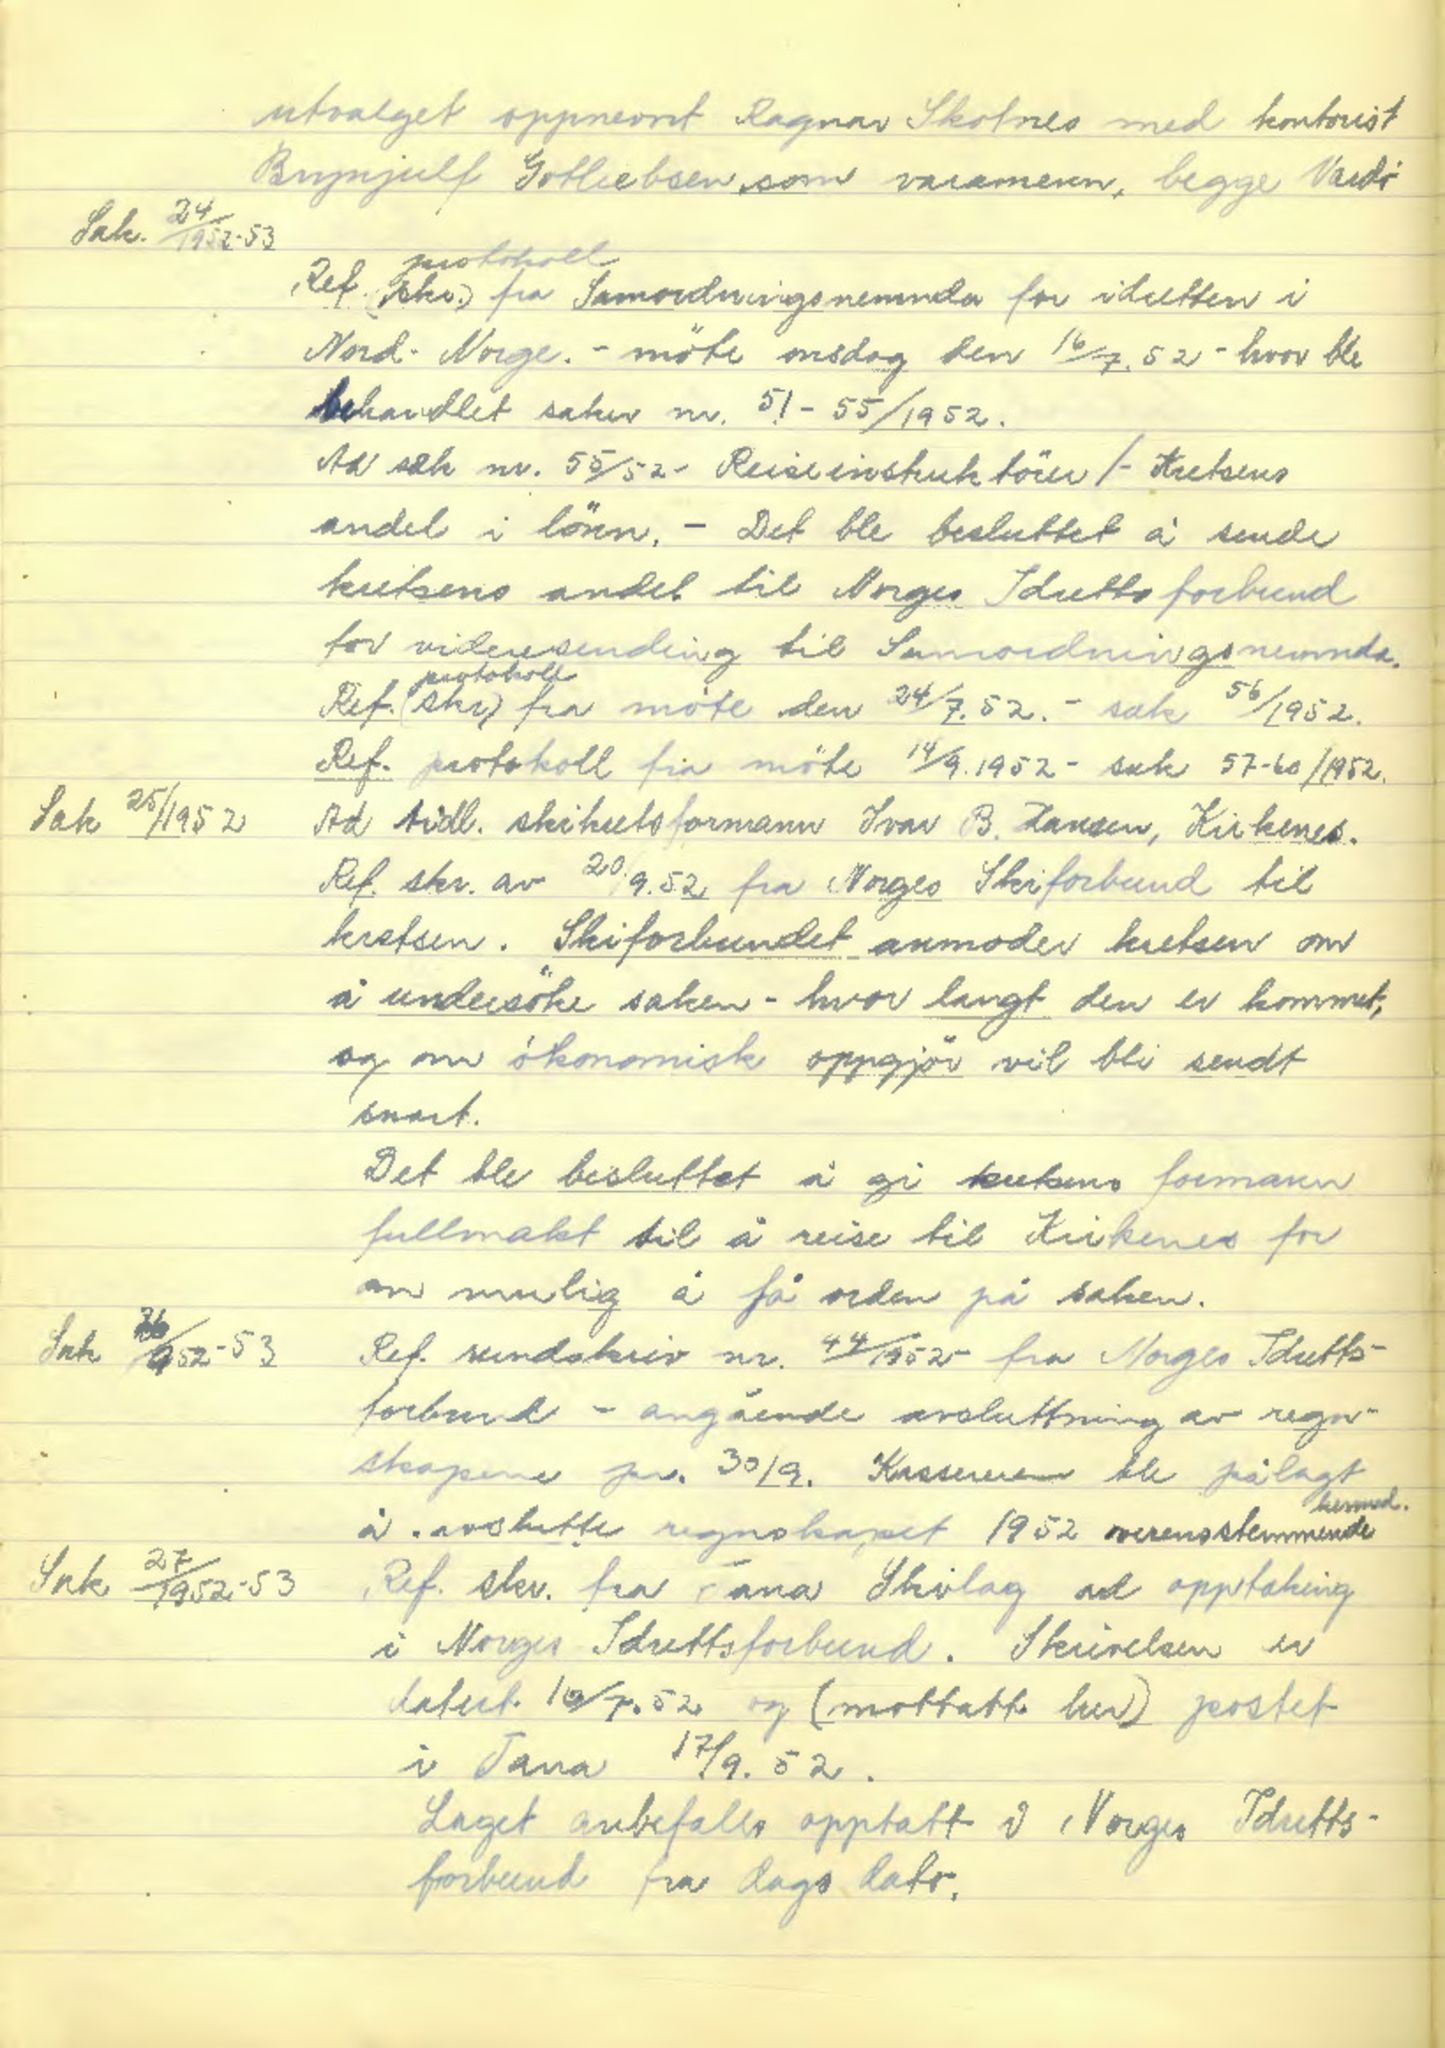 utvalget oppnevnt Ragnar Skotnes med kontorist
Brynjulf Gotliebsen som varamenn, begge Vardö
Sak. 24/1952-53
protokoll
Ref. (skr.) fra Samordningsnemnda for idretten i
Nord-Norge. - möte onsdag den 16/7.52 - hvor ble
behandlet saker nr. 51-55/1952.
Ad sak nr. 55/52 - Reiseinstruktörer /- Kretsens
andel i lönn. - Det ble besluttet å sende
kretsens andel til Norges Idrettsforbund
for videresending til Samordningsnemnda.
protokoll
Ref. (skr) fra möte den 24/7.52. - sak 56/1952.
Ref. protokoll fra möte 14/9.1952 - sak 57-60/1952.
Sak 25/1952 Ad tidl. skikretsformann Ivar B. Hansen, Kirkenes.
Ref. skr. av 20/9.52 fra Norges Skiforbund til
kretsen. Skiforbundet anmoder kretsen om
å undersöke saken - hvor langt den er kommet,
og om ökonomisk oppgjör vil bli sendt
snart.
Det ble besluttet å gi kretsens formann
fullmakt til å reise til Kirkenes for
om mulig å få orden på saken.
Sak 26/1952-53 Ref. rundskriv nr. 44/1952 fra Norges Idretts-
forbund - angående avsluttning av regn-
skapene pr. 30/9. Kassereren ble pålagt
hermed.
å avslutte regnskapet 1952 overensstemmende
Sak 27/1952-53 Ref. skr. fra Tana Skilag ad opptaking
i Norges Idrettsforbund. Skrivelsen er
datert 10/7.52 og (mottatt her) postet
i Tana 17/9.52.
Laget anbefalls opptatt i Norges Idretts-
forbund fra dags dato.